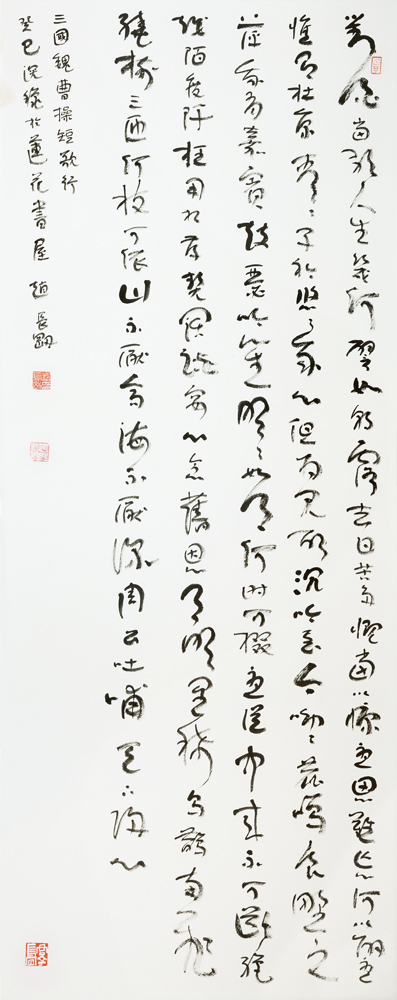 對酒當歌人生幾何譬如朝露去日苦多慨當以慷憂思難忘何以解憂
惟有杜康青〻子衿悠〻我心但為君故沉吟至今呦〻鹿鳴食野之
苹我有嘉賓鼓瑟吹笙明〻如月何時可掇憂從中來不可斷絕
越陌度阡枉用相存契闊談宴心念舊恩月明星稀烏鵲南飛
繞樹三匝何枝可依山不厭高海不厭深周公吐哺天下歸心
三國魏曹操短歌行
癸巳深秋於蓮花書屋 趙長